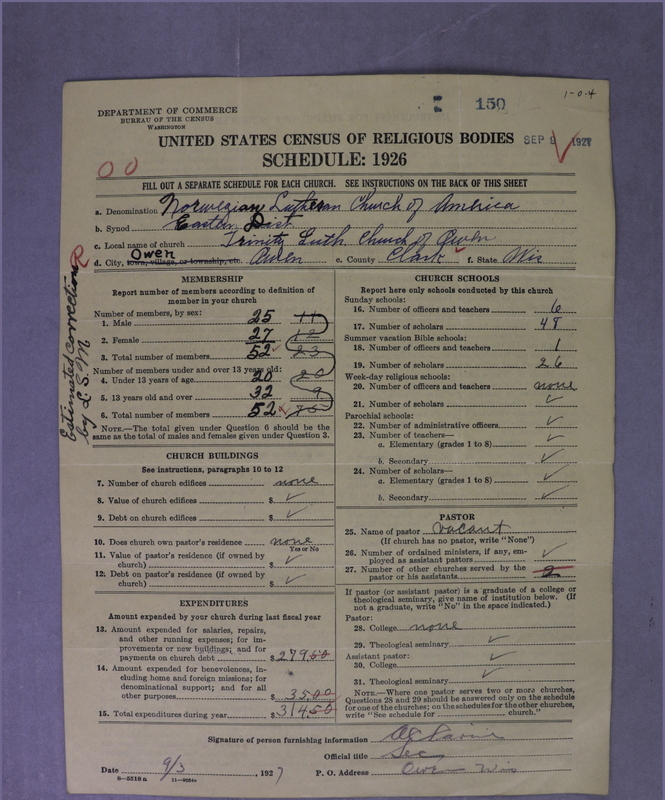 1-0.4
150
DEPARTMENT OF COMMERCE
BUREAU OF THE CENSUS
WASHINGTON
UNITED STATES CENSUS OF RELIGIOUS BODIES
SEP 9 1927
SCHEDULE: 1926
00
FILL OUT A SEPARATE SCHEDULE FOR EACH CHURCH. SEE INSTRUCTIONS ON THE BACK OF THIS SHEET
a. Denomination Norwegian Lutheran Church of America
b. Synod Eastern Dist.
c. Local name of church Trinity Luth. Church of Owen
d. City, town, village, or township, etc. Owen Owen e. County Clark f. State Wis
Estimated corrections
by L.S.M.
MEMBERSHIP
Report number of members according to definition of
member in your church
Number of members, by sex:
1. Male 25 11
2. Female 27 12
3. Total number of members 52 23
Number of members under and over 13 years old:
4. Under 13 years of age 20 20
5. 13 years old and over 32 9
6. Total number of members 52
NOTE.—The total given under Question 6 should be the
same as the total of males and females given under Question 3.
CHURCH BUILDINGS
See instructions, paragraphs 10 to 12
7. Number of church edifices none
8. Value of church edifices $ ✓
9. Debt on church edifices $ ✓
10. Does church own pastor's residence? none
Yes or No
11. Value of pastor's residence (if owned by
church) $ ✓
12. Debt on pastor's residence (if owned by
church) $ ✓
EXPENDITURES
Amount expended by your church during last fiscal year
13. Amount expended for salaries, repairs,
and other running expenses; for im-
provements or new buildings; and for
payments on church debt $ 279.50
14. Amount expended for benevolences, in-
cluding home and foreign missions; for
denominational support; and for all
other purposes $ 35.00
15. Total expenditures during year $ 314.50
CHURCH SCHOOLS
Report here only schools conducted by this church
Sunday schools:
16. Number of officers and teachers 6
17. Number of scholars 48
Summer vacation Bible schools:
18. Number of officers and teachers 1
19. Number of scholars 26
Week-day religious schools:
20. Number of officers and teachers none
21. Number of scholars ✓
Parochial schools:
22. Number of administrative officers ✓
23. Number of teachers—
a. Elementary (grades 1 to 8) ✓
b. Secondary ✓
24. Number of scholars—
a. Elementary (grades 1 to 8) ✓
b. Secondary ✓
PASTOR
25. Name of pastor vacant
(If church has no pastor, write "None")
26. Number of ordained ministers, if any, em-
ployed as assistant pastors ✓
27. Number of other churches served by the
pastor or his assistants 2
If pastor (or assistant pastor) is a graduate of a college or
theological seminary, give name of institution below. (If
not a graduate, write "No" in the space indicated.)
Pastor:
28. College none
29. Theological seminary ✓
Assistant pastor:
30. College ✓
31. Theological seminary ✓
NOTE.—Where one pastor serves two or more churches,
Questions 28 and 29 should be answered only on the schedule
for one of the churches; on the schedules for the other churches,
write "See schedule for church."
Signature of person furnishing information
Official title Sec
Date 9/3, 1927 P. O. Address Owen Wis
8-5518a 11-9264